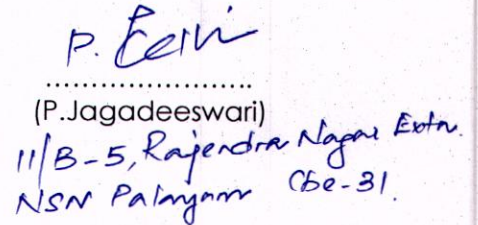 P.
....................
(P.Jagadeeswari)
11/B-5, Rajendra Nagar Extn.
NSN Palayam Cbe-31.